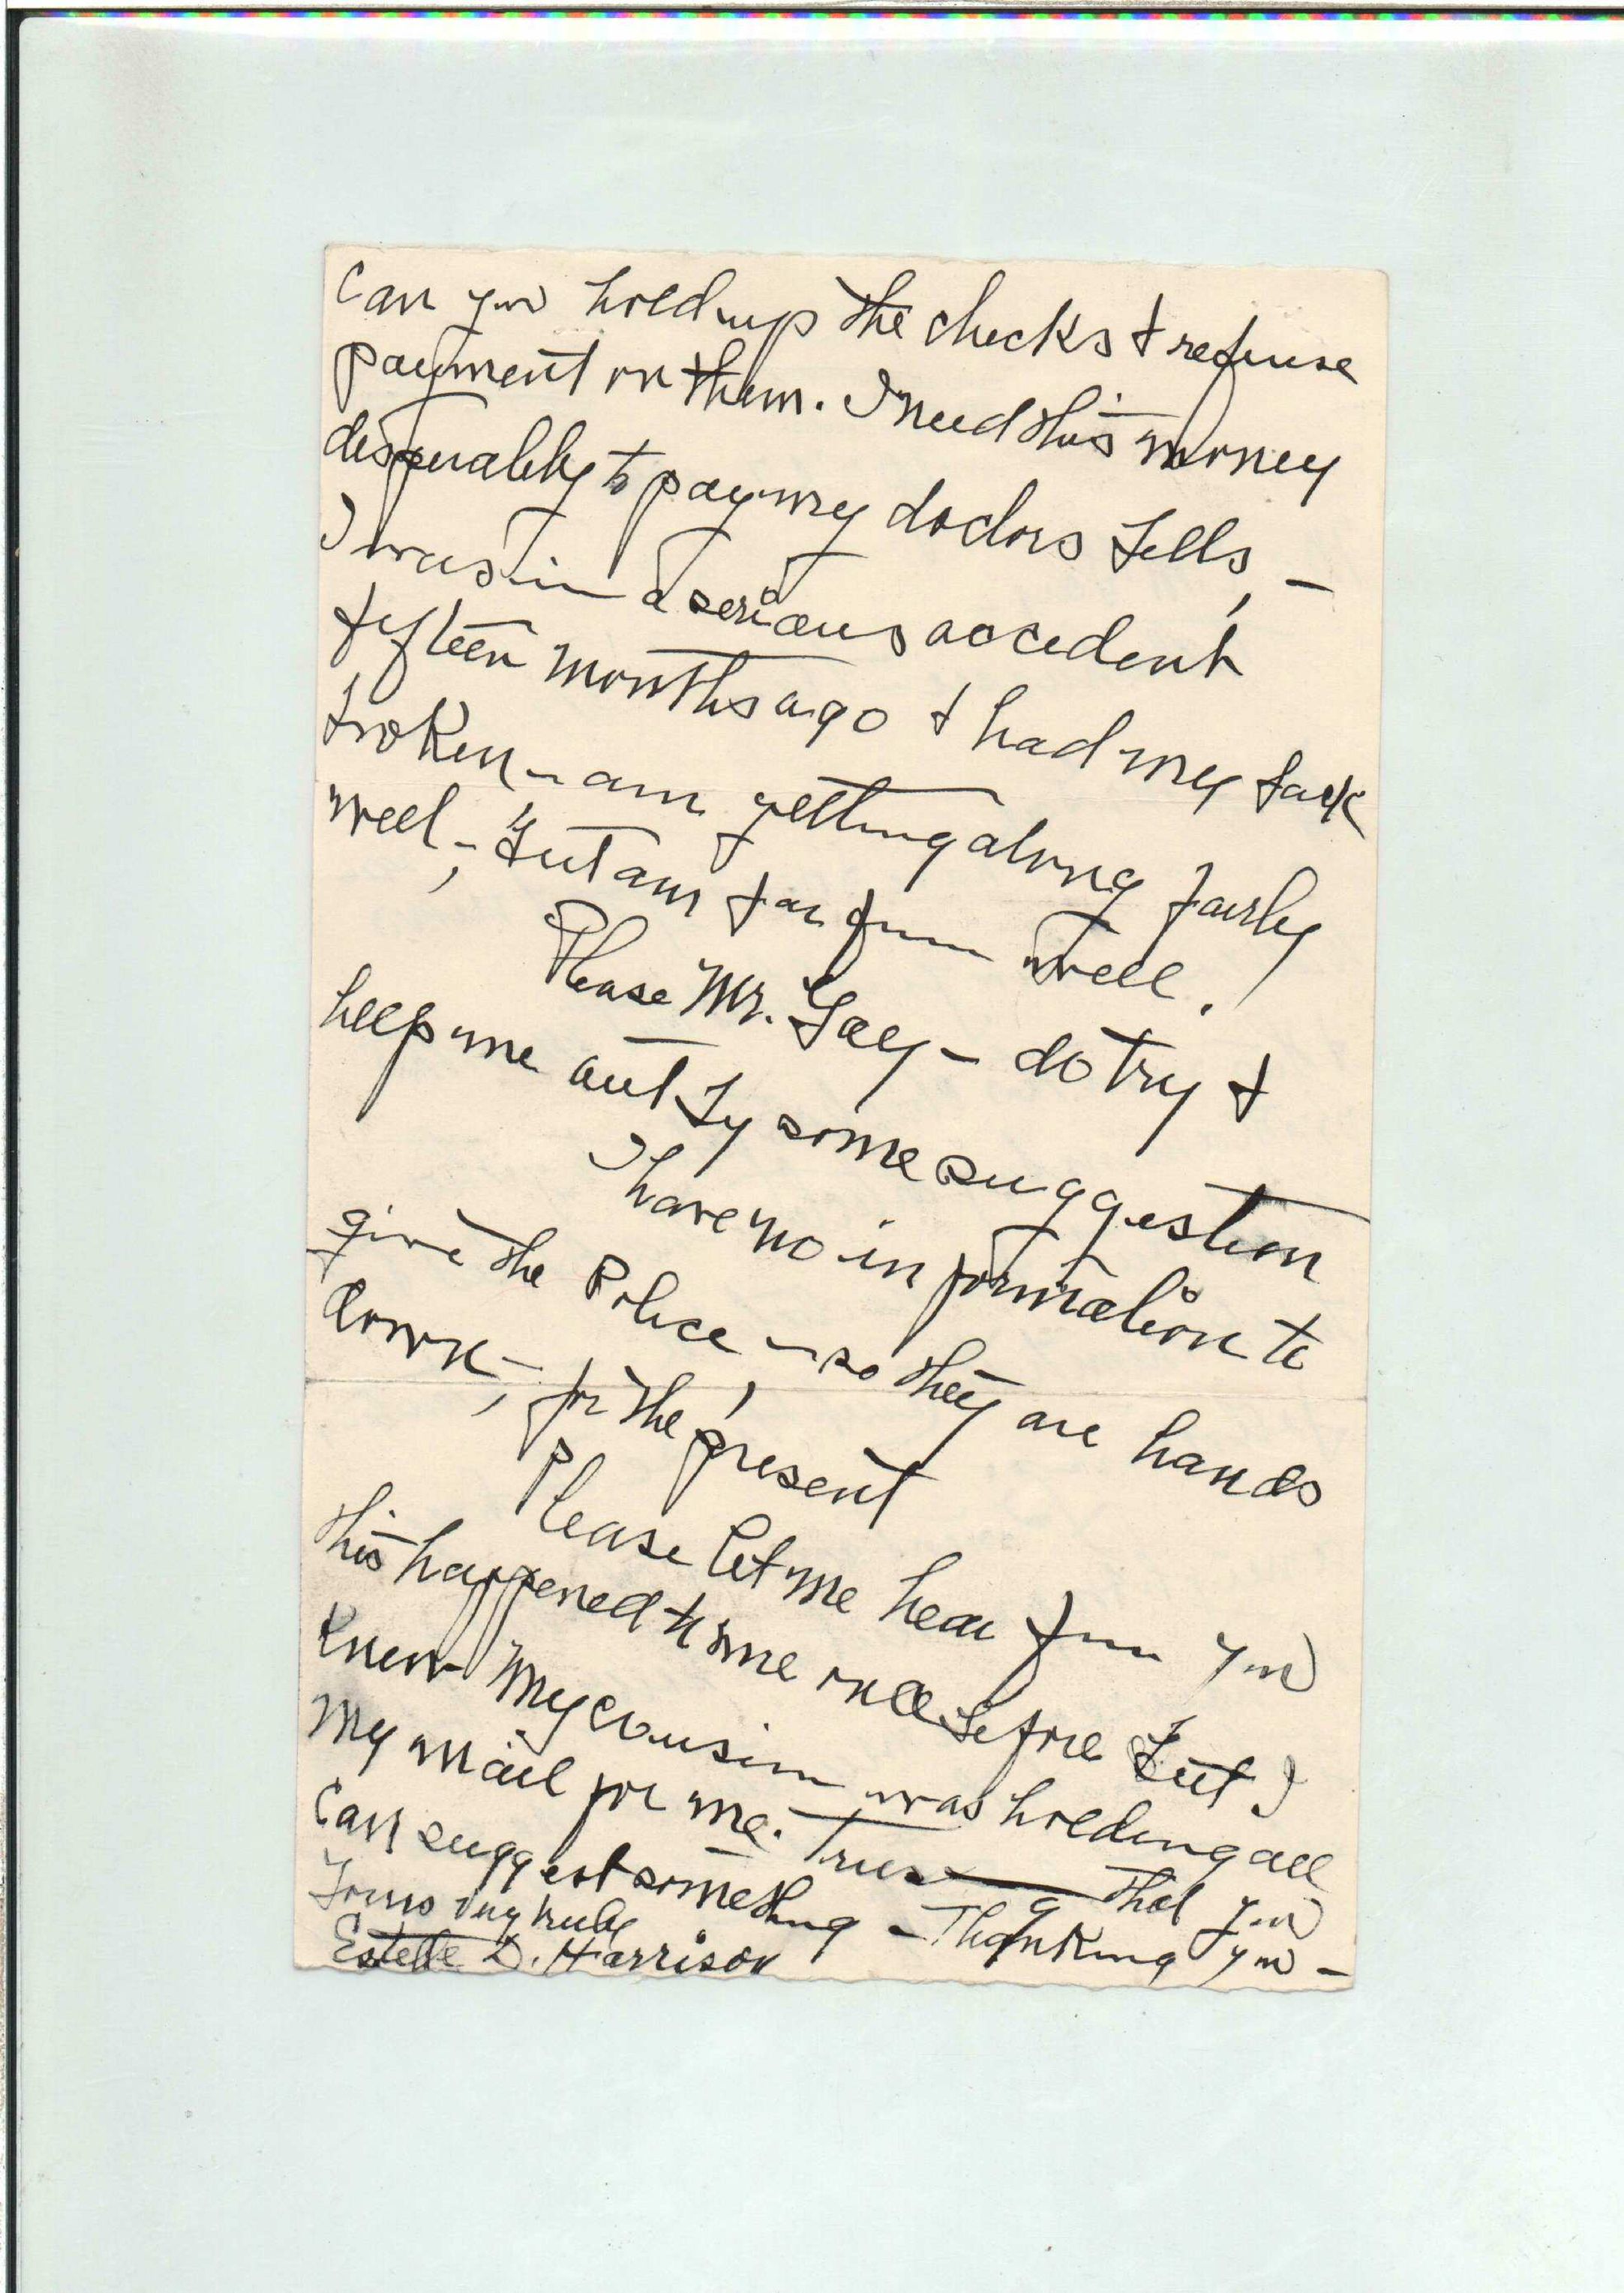 Can you hold up the checks & refuse
payment on them. I need this money
desperately to pay my doctors bills, –
I was in a serious accident
fifteen months ago & had my back
broken – am getting along fairly
well –; but am far from well.
Please Mr. Gay – do try &
help me out by some suggestion
I have no information to
give the Police –, so they are hands
down –, for the present
Please let me hear from you
this happened to me once before but I
knew my cousin was holding all
my mail for me. Trusting that you
can suggest something – Thanking you –
Yours very truly
Estelle D. Harrison